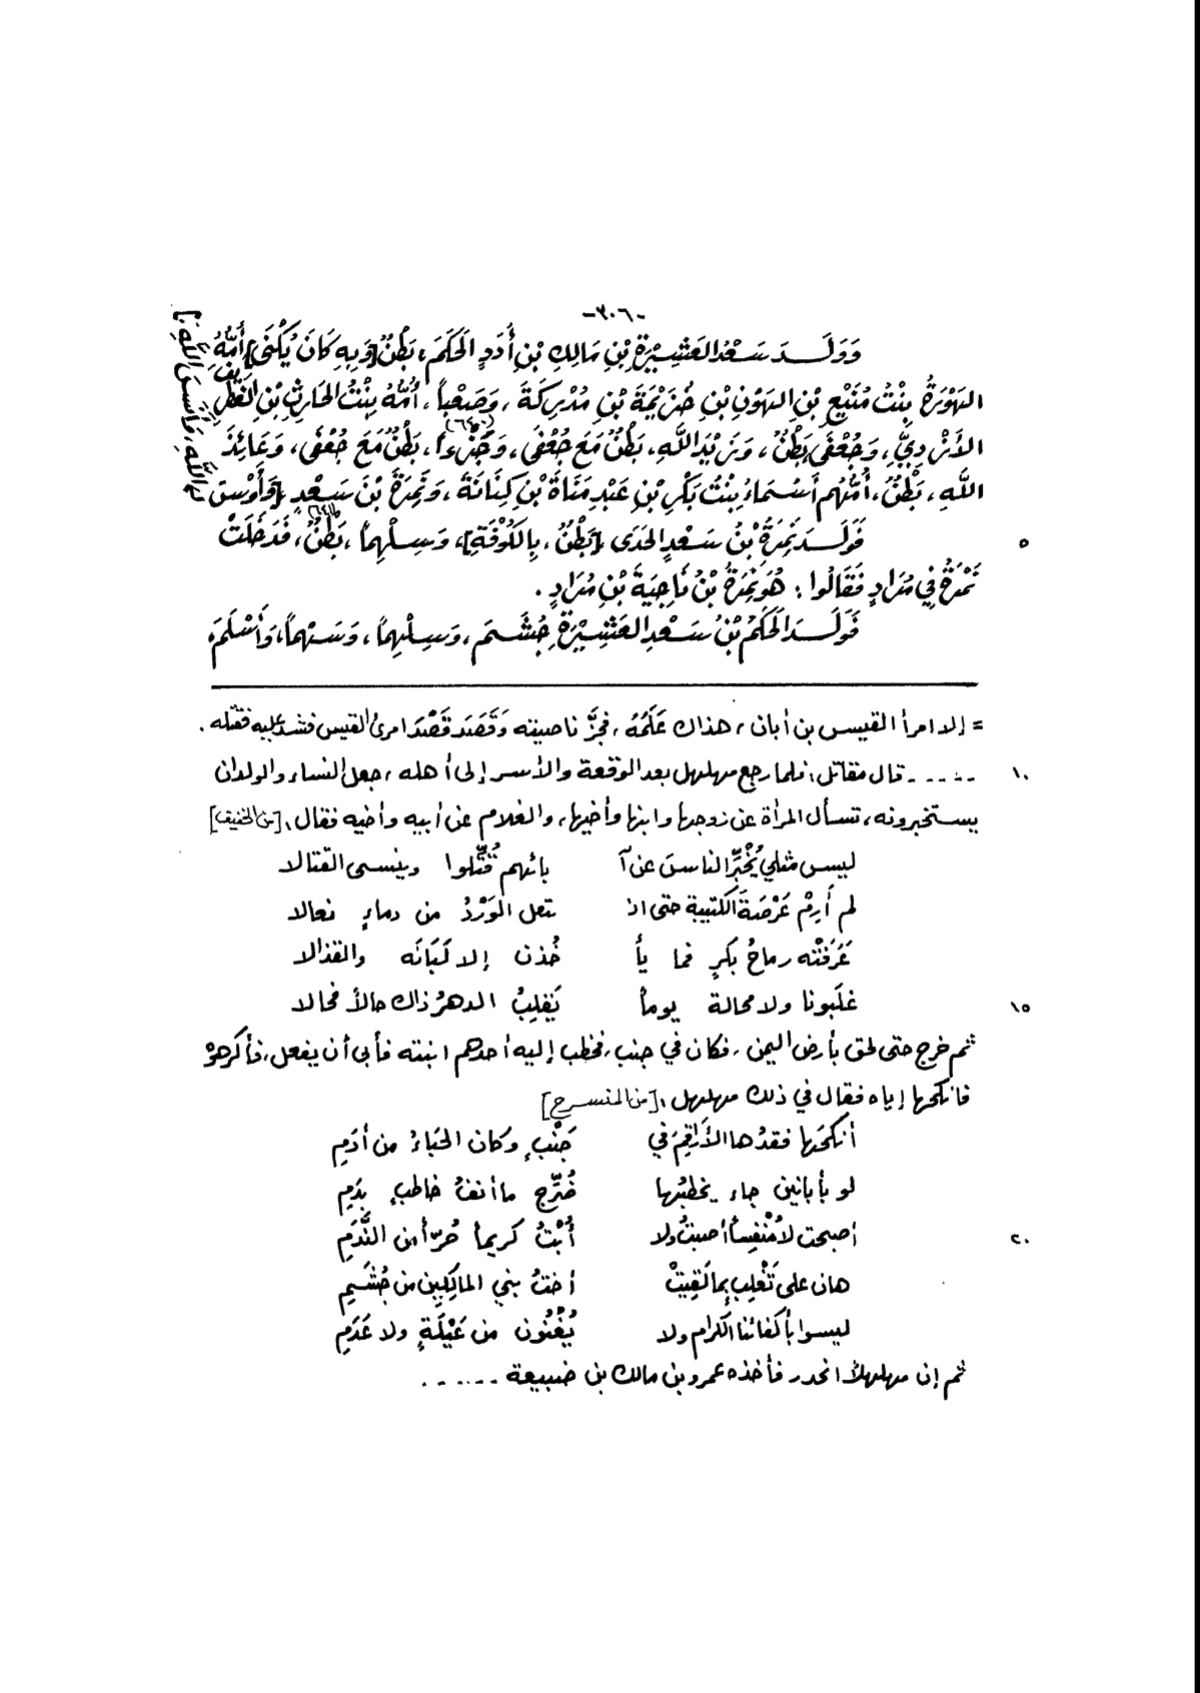 -٣٠٦-
وَوَلَـــدَ سَعْدُ العَشِيرَةِ بْنِ مَالِكِ بْنِ أُدَدٍ الحَكَمَ، بَطْنٌ [وَبِهِ كَانَ يُكْنَى] أُمُّهُ
الهَوْرَةُ بِنْتُ مُنَيْعِ بْنِ الهَوْنِ بْنِ خُزَيْمَةَ بْنِ مُدْرِكَةَ، وَصَعْباً، أُمُّهُ بِنْتُ الحَارِثِ بْنِ الغَطِ بْنِ
الأَزْدِيِّ، وَجُعْفَى بَطْنٌ، وَزَيْدَ اللَّهِ، بَطْنٌ مَعَ جُعْفَى، وَجَزْءاً، بَطْنٌ مَعَ جُعْفَى، وَعَائِذَ
اللَّهِ، بَطْنٌ، أُمُّهُم أَسْمَاءُ بِنْتُ بَكْرِ بْنِ عَبْدِ مَنَاةَ بْنِ كِنَانَةَ، وَنَمِرَةَ بْنَ سَعْدٍ [وَأَوْسَ
اللَّهِ، وَأَنَسَ اللَّهِ.]
٥ فَوَلَــدَ نَمِرَةُ بْنُ سَعْدٍ الحَدَى [بَطْنٌ، بِالكُوْفَةِ]، وَسِلْهِماً، بَطْنٌ، فَدَخَلَتْ
نَمْرَةُ فِي مُرَادٍ فَقَالُوا: هُوَ نَمِرَةُ بْنُ نَاجِيَةَ بْنِ مُرَادٍ.
فَوَلَــدَ الحَكَمُ بْنُ سَعْدِ العَشِيرَةِ جُشَمَ، وَسِلْهِماً، وَسَهْماً، وَأَسْلَمَ
= إلا امرأ القيس بن أبان، هذاك عَلَمُهُ، فجزَّ ناصيته وَقَصَدَ قَصْدَ امرئ القيس فشد عليه فقتله.
١٠ ..... قال مقاتل: فلما رجع مهلهل بعد الوقعة والأسر إلى أهله، جعل النساء والولدان
يستخبرونه، تسأل المرأة عن زوجها وابنها وأخيها، والغلام عن أبيه وأخيه فقال: [من الخفيف]
ليس مثلي يُخَبِّرُ الناسَ عن آ بائهم قُتِّلوا وينسى القتالا
لم أَرِمْ عَرْصَةَ الكتيبة حتى انـ تعل الوَرْدُ من دماءٍ نعالا
عَرَفَتْه رماحُ بكرٍ فما يأ خُذن إلا لَبَانَه والقذالا
١٥ غلَبونا ولا محالة يوماً يَقلِبُ الدهرُ ذاك حالاً فحالا
ثم خرج حتى لحق بأرض اليمن، فكان في جنب، فخطب إليه أحدهم ابنته فأبى أن يفعل، فأكرهوْ
فأنكحها إياه فقال في ذلك مهلهل: [من المنسرح]
أنكحَها فقدُها الأَرَاقِمَ في جَنْبٍ وكان الحَبَاءُ من أَدَمِ
لو بأبانين جاء يخطبُها ضُرِّج ما أنفُ خاطبٍ بدَمِ
٢٠ أصبحت لا مُنْفِساً أصبتُ ولا أُبْتُ كريماً حُرّاً من النَّدَمِ
هان على تَغْلِبٍ بما لَقِيَتْ أختُ بني المالِكِين من جُشَمِ
ليسوا بأكفائنا الكرام ولا يُغْنُون من عَيْلَةٍ ولا عَدَمِ
ثم إن مهلهلاً انحدر فأخذه عمرو بن مالك بن ضبيعة ......